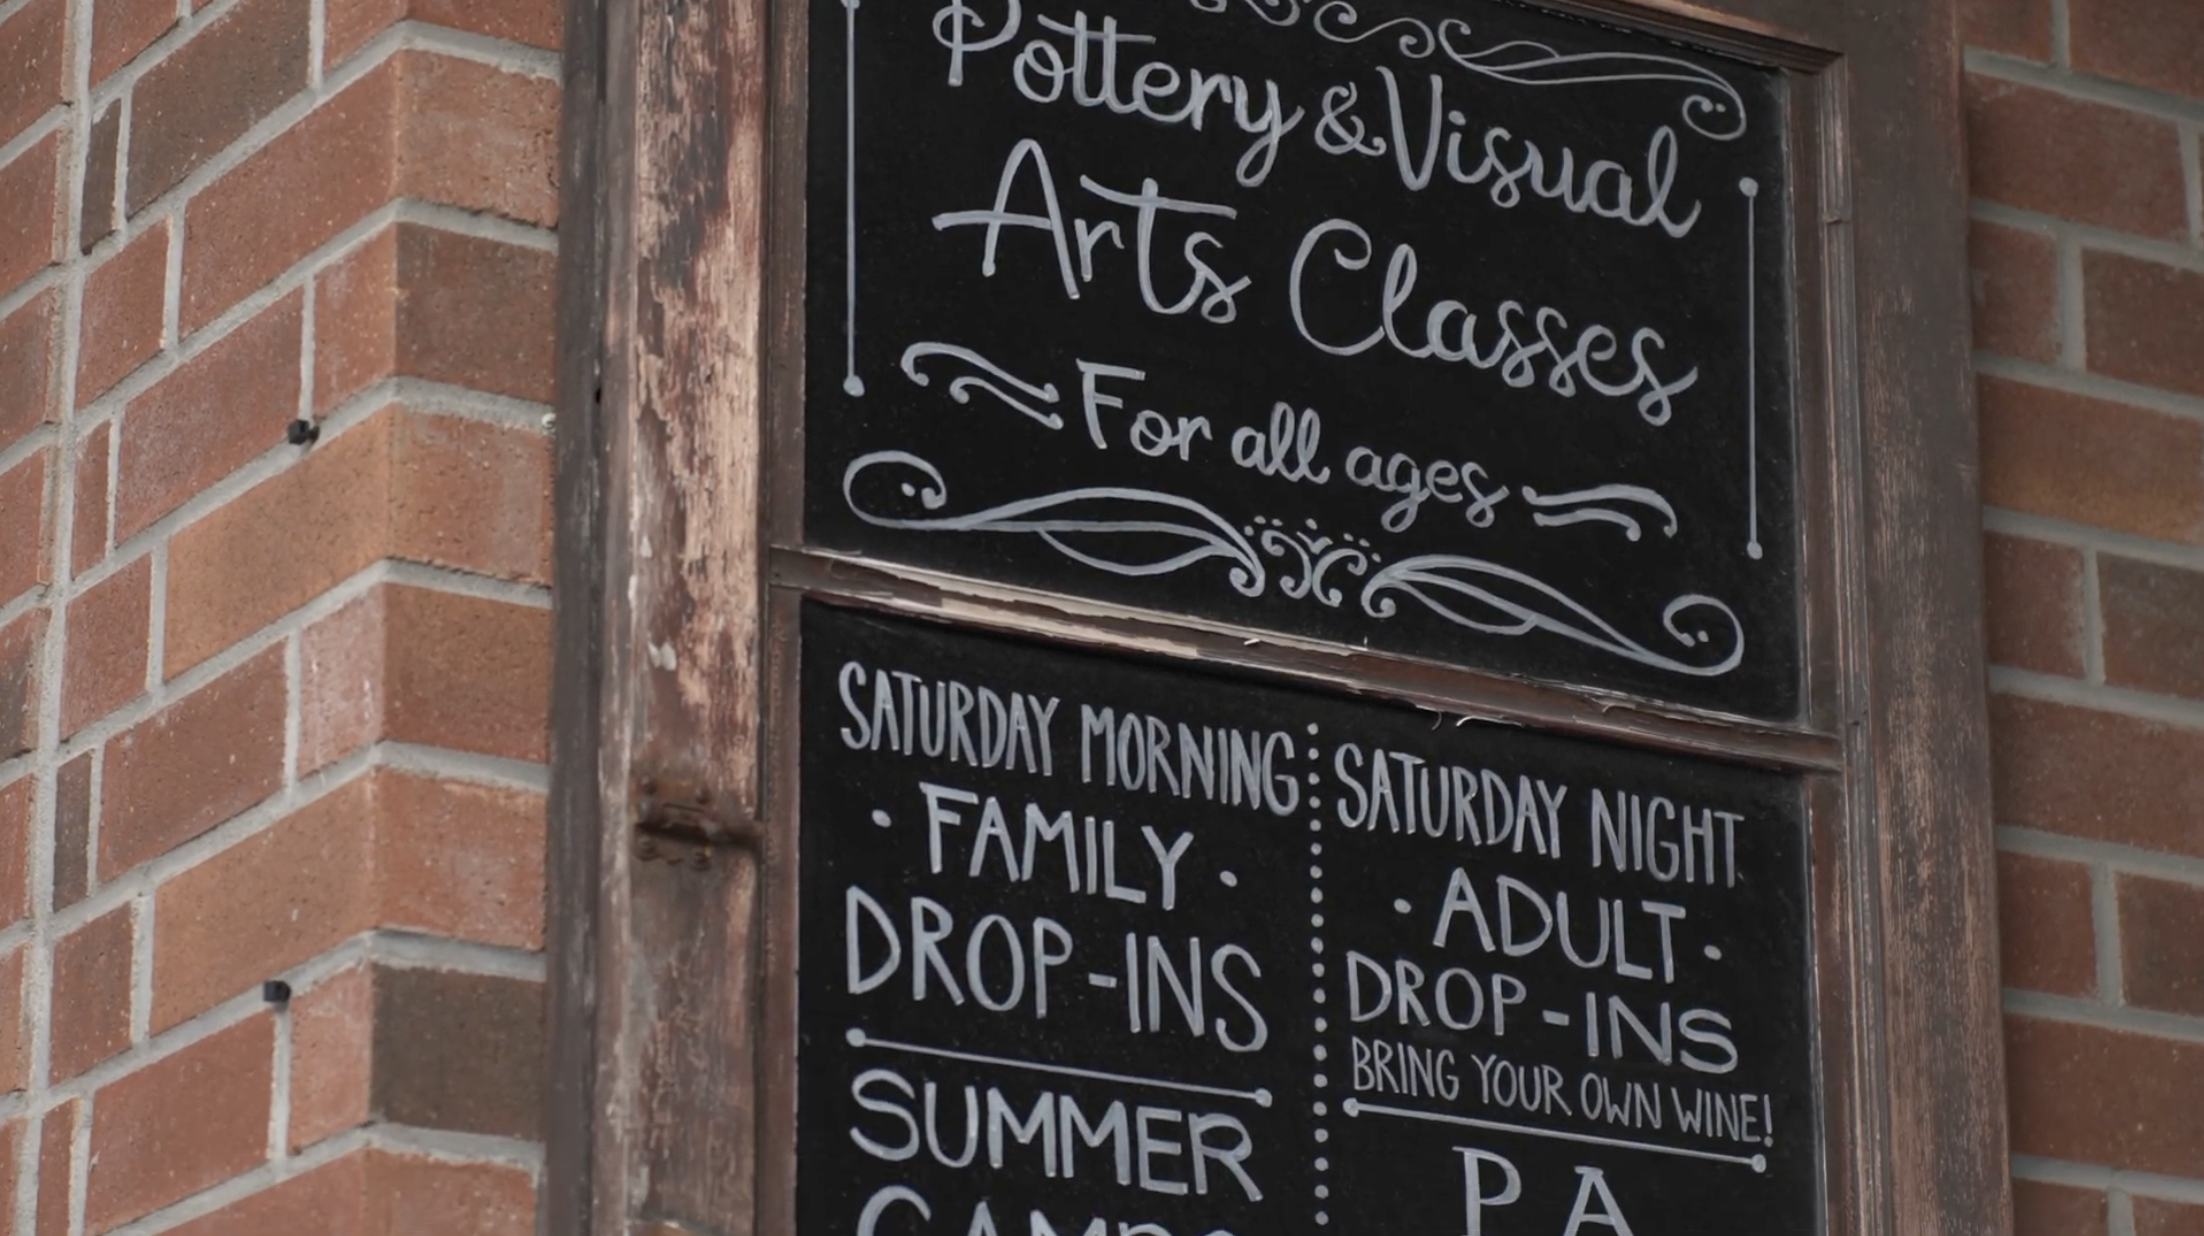 Pottery & Visual
Arts Classes
For all ages
SATURDAY MORNING
· FAMILY ·
DROP-INS
SUMMER
SATURDAY NIGHT
· ADULT ·
DROP-INS
BRING YOUR OWN WINE!
P A